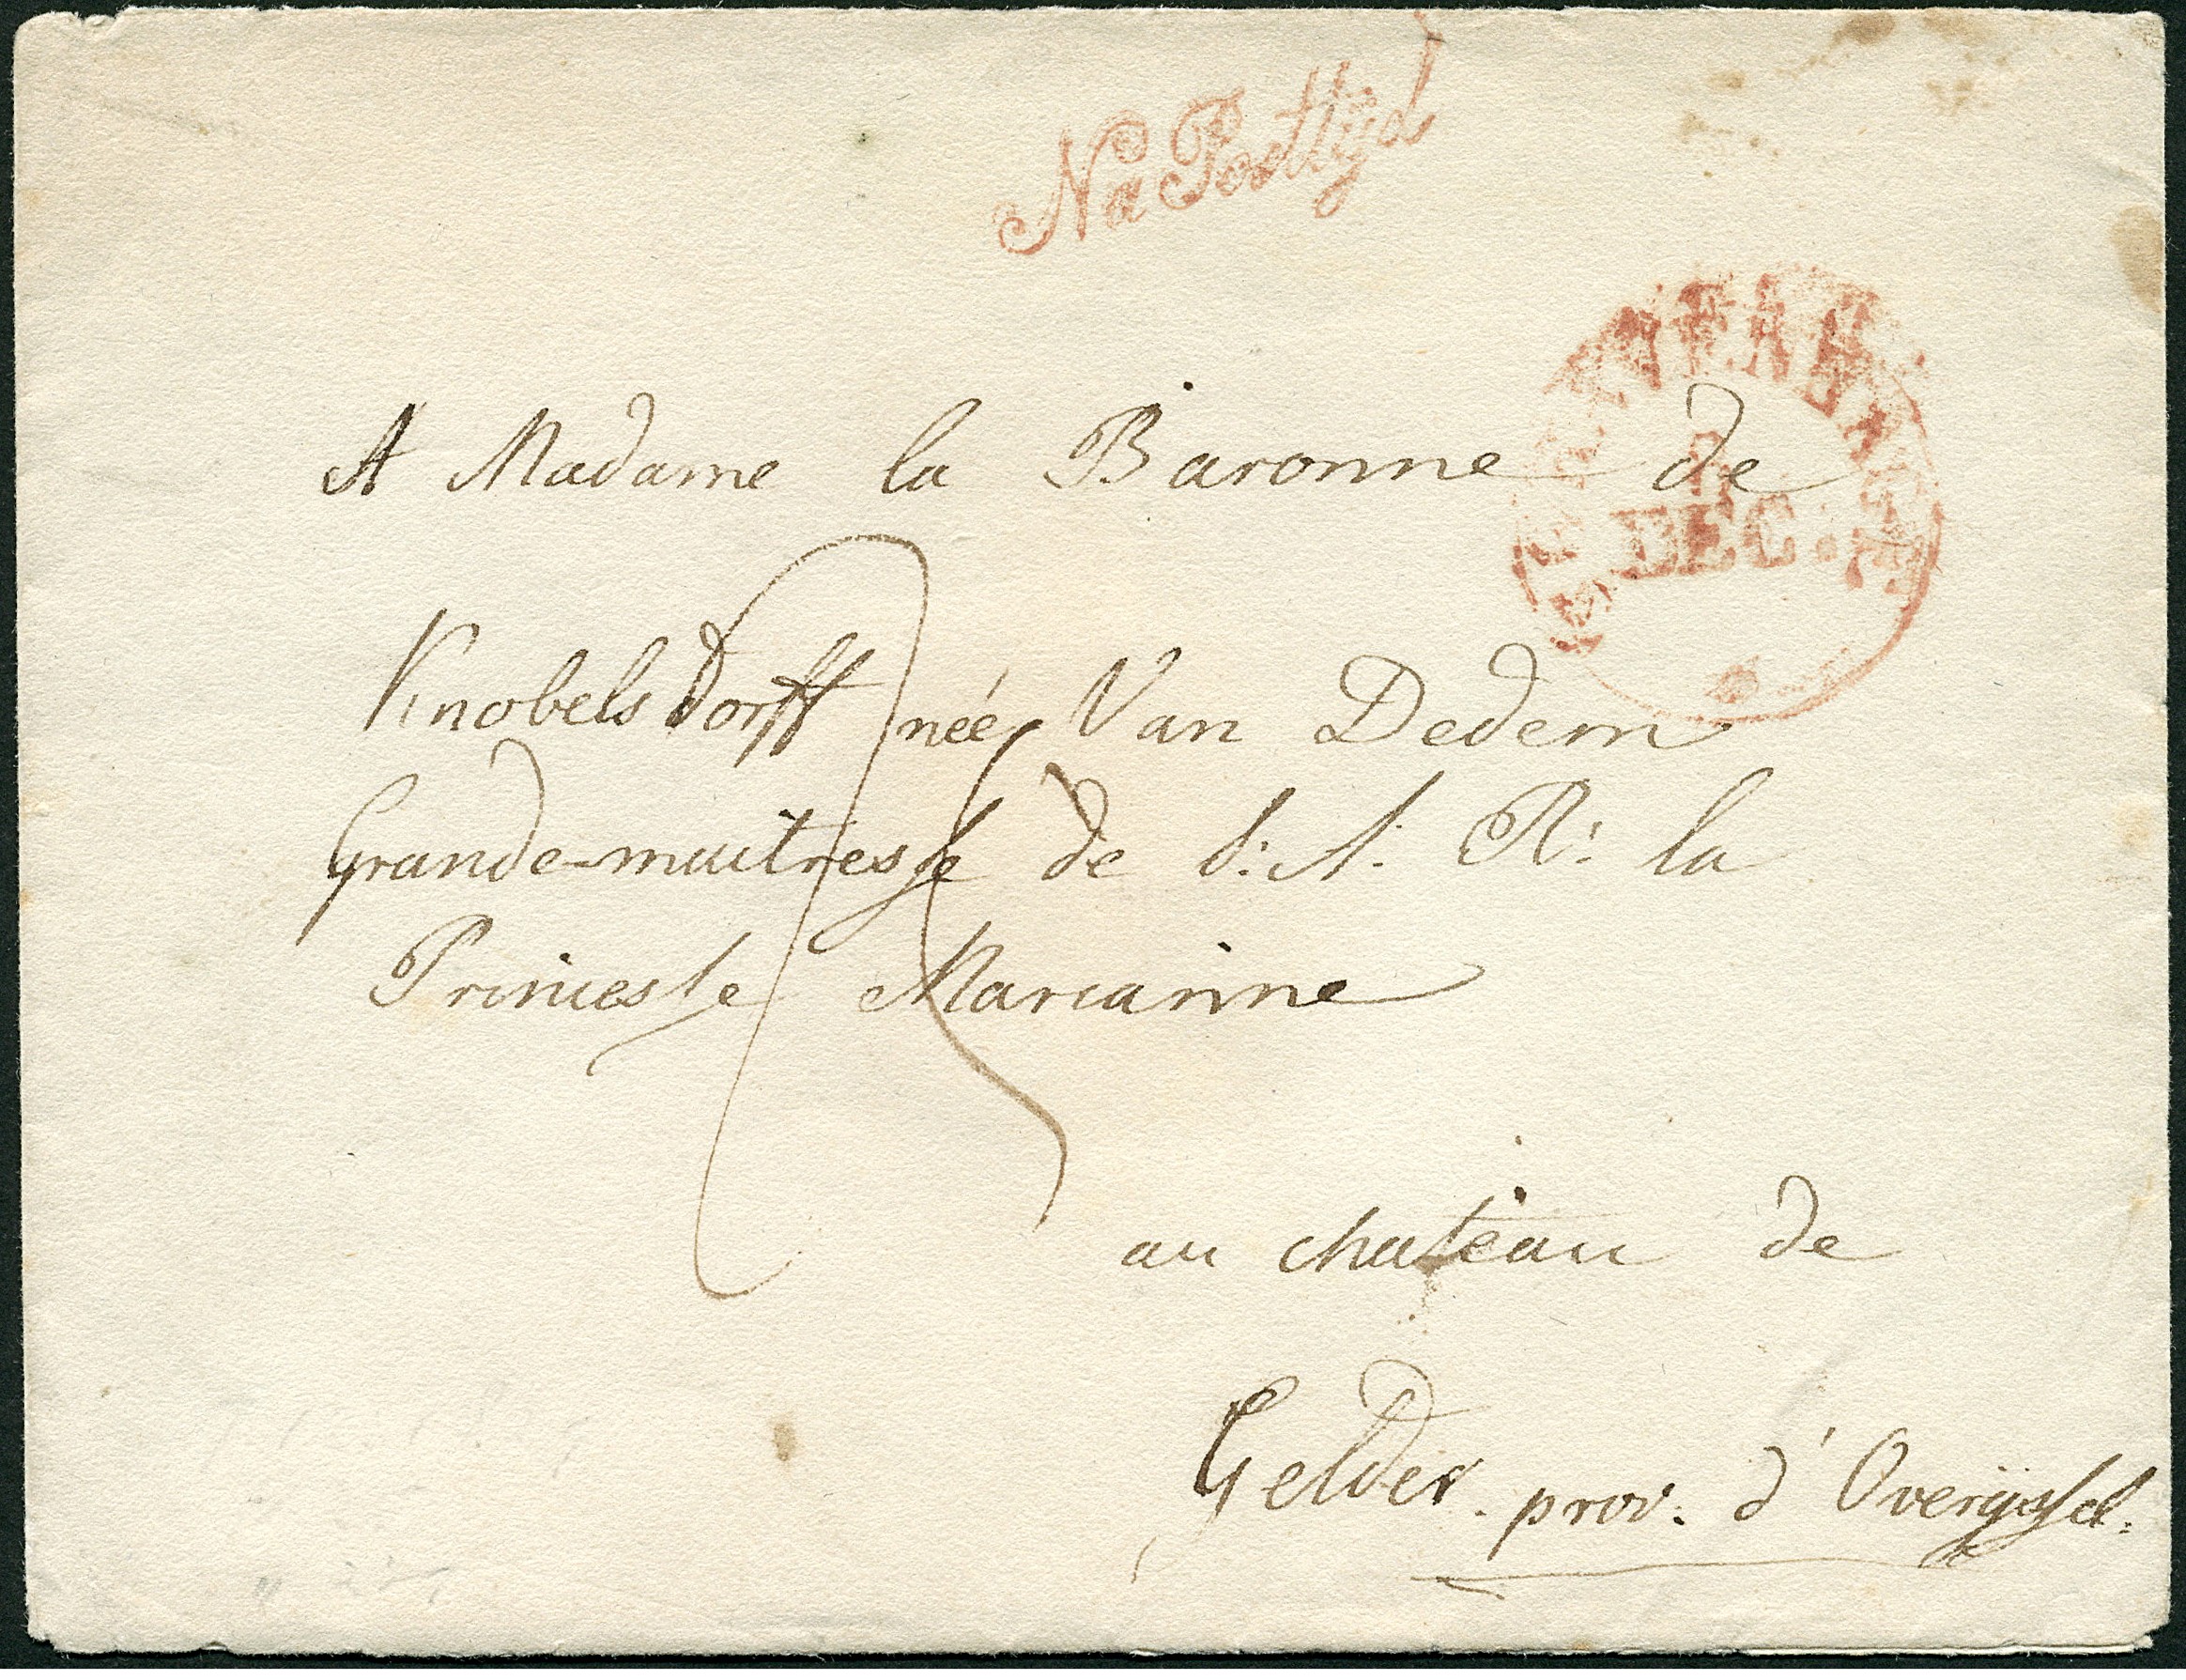 Na Posttijd
'S GRAVENHAGE
DEC.
A Madame la Baronne de
Knobelsdorff née Van Dedem
Grande-maitresse de S: A: R: la
Princesse Marianne
25
au chateau de
Gelder. prov: d'Overijssel.